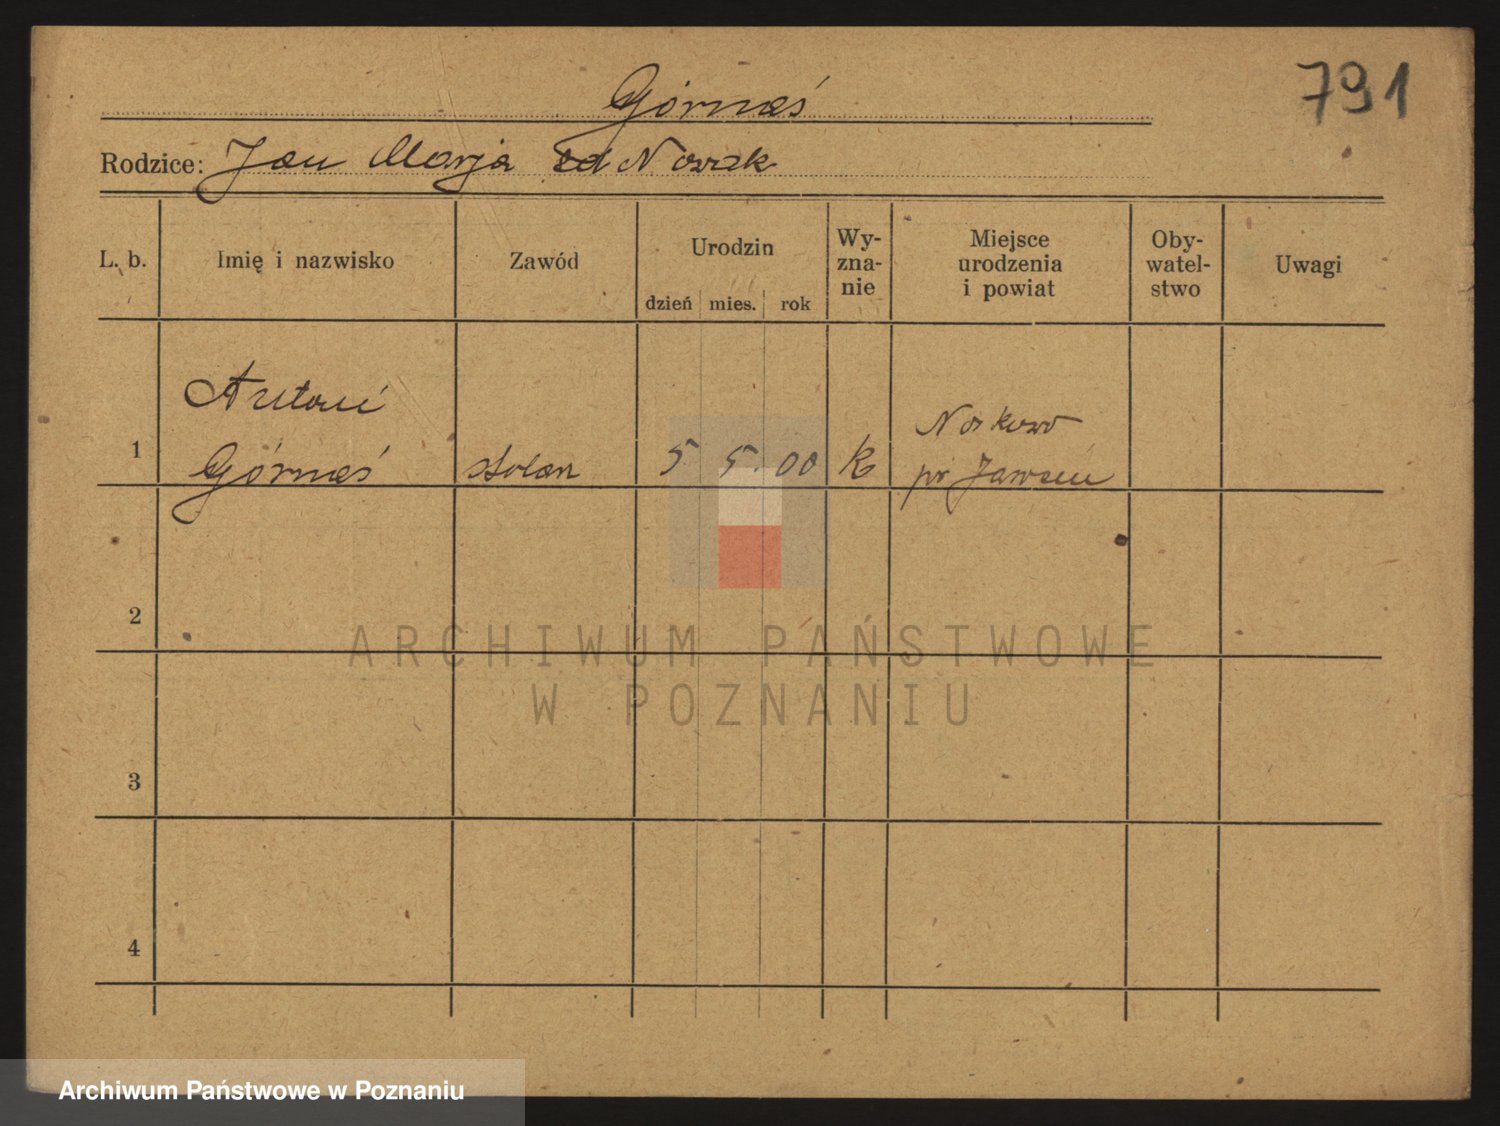 791
Górnaś
Rodzice: Jan Marja zd Nowak
L. b. Imię i nazwisko Zawód Urodzin Wy-zna-nie Miejsce urodzenia i powiat Oby-watel-stwo Uwagi
dzień mies. rok
Antoni
1 Górnaś stolarz 5 5. 00 k Noskowo
pow Jarocin
2
3
4
ARCHIWUM PAŃSTWOWE
W POZNANIU
Archiwum Państwowe w Poznaniu